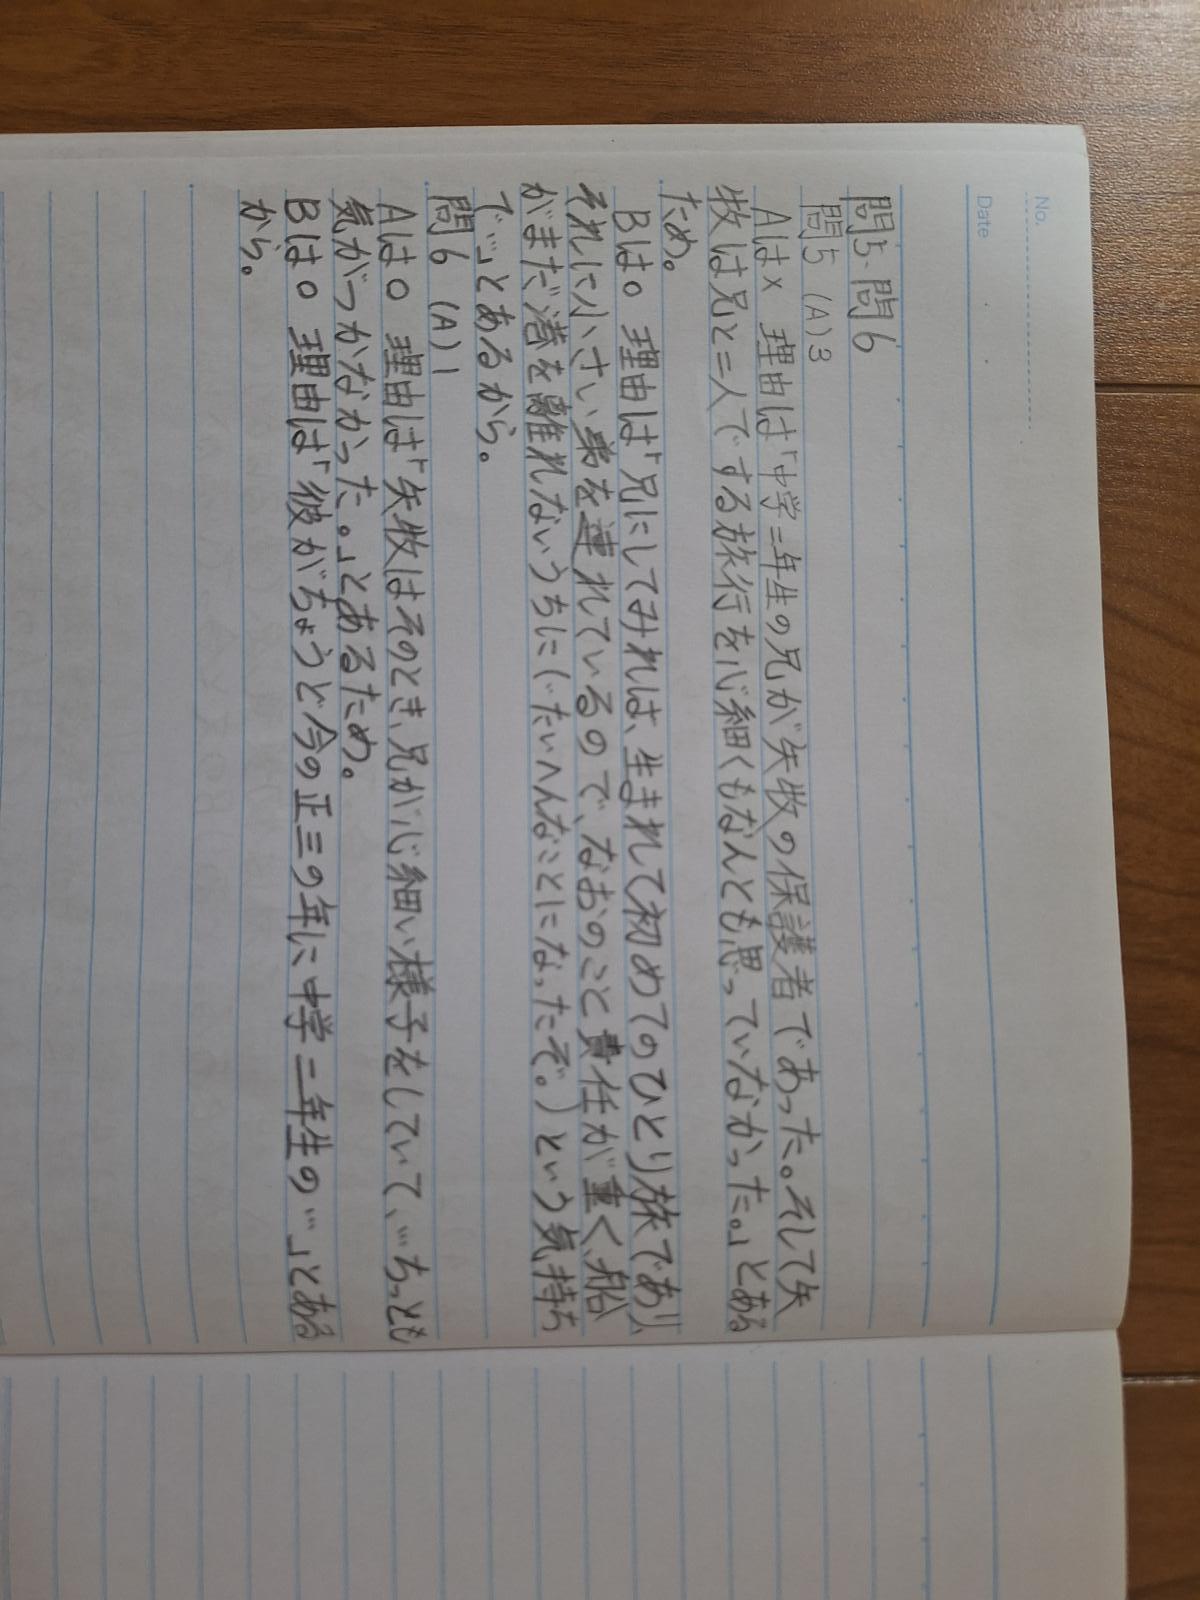 No.
Date
問5・問6
問5 (A)3
Aは× 理由は「中学二年生の兄が矢牧の保護者であった。そして矢
牧は兄と二人でする旅行を心細くもなんとも思っていなかった。」とある
ため。
Bは○ 理由は「兄にしてみれば、生まれて初めてのひとり旅であり、
それに小さい弟を連れているので、なおのこと責任が重く、船
がまだ港を離れないうちに(たいへんなことになったぞ。)という気持ち
で…」とあるから。
問6 (A)1
Aは○ 理由は「矢牧はそのとき、兄が心細い様子をしていて、…ちっとも
気がつかなかった。」とあるため。
Bは○ 理由は「彼がちょうど今の正三の年に中学二年生の…」とある
から。